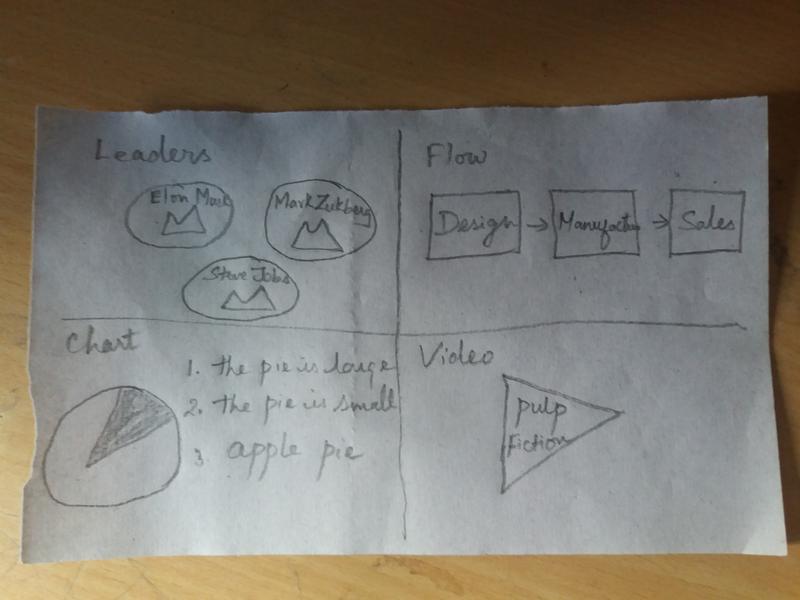 Leaders
Elon Mask
Mark Zukberg
Steve Jobs
Flow
Design
Manufactur
Sales
Chart
1. the pie is large
2. the pie is small
3. apple pie
Video
pulp
Fiction